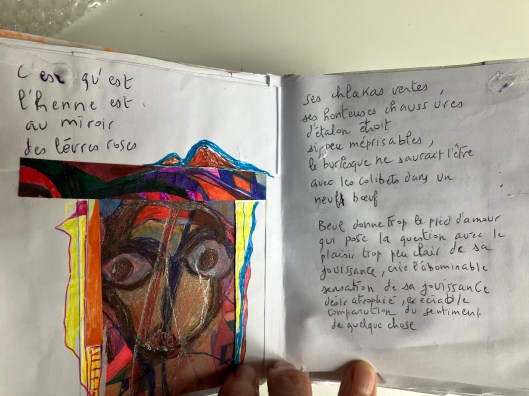 c'est qu'est
l'henne est
au miroir
des lèvres roses
ses chlakas vertes,
ses honteuses chaussures
d'étalon étroit
si peu méprisables,
le burlesque ne saurait l'être
avec les colibets dans un
neuf bœuf
Beuf donne trop le pied d'amour
qui pose la question avec le
plaisir trop peu clair de sa
jouissance, crie l'abominable
sensation de sa jouissance
désir atrophié, exéciable
comparution du sentiment
de quelque chose